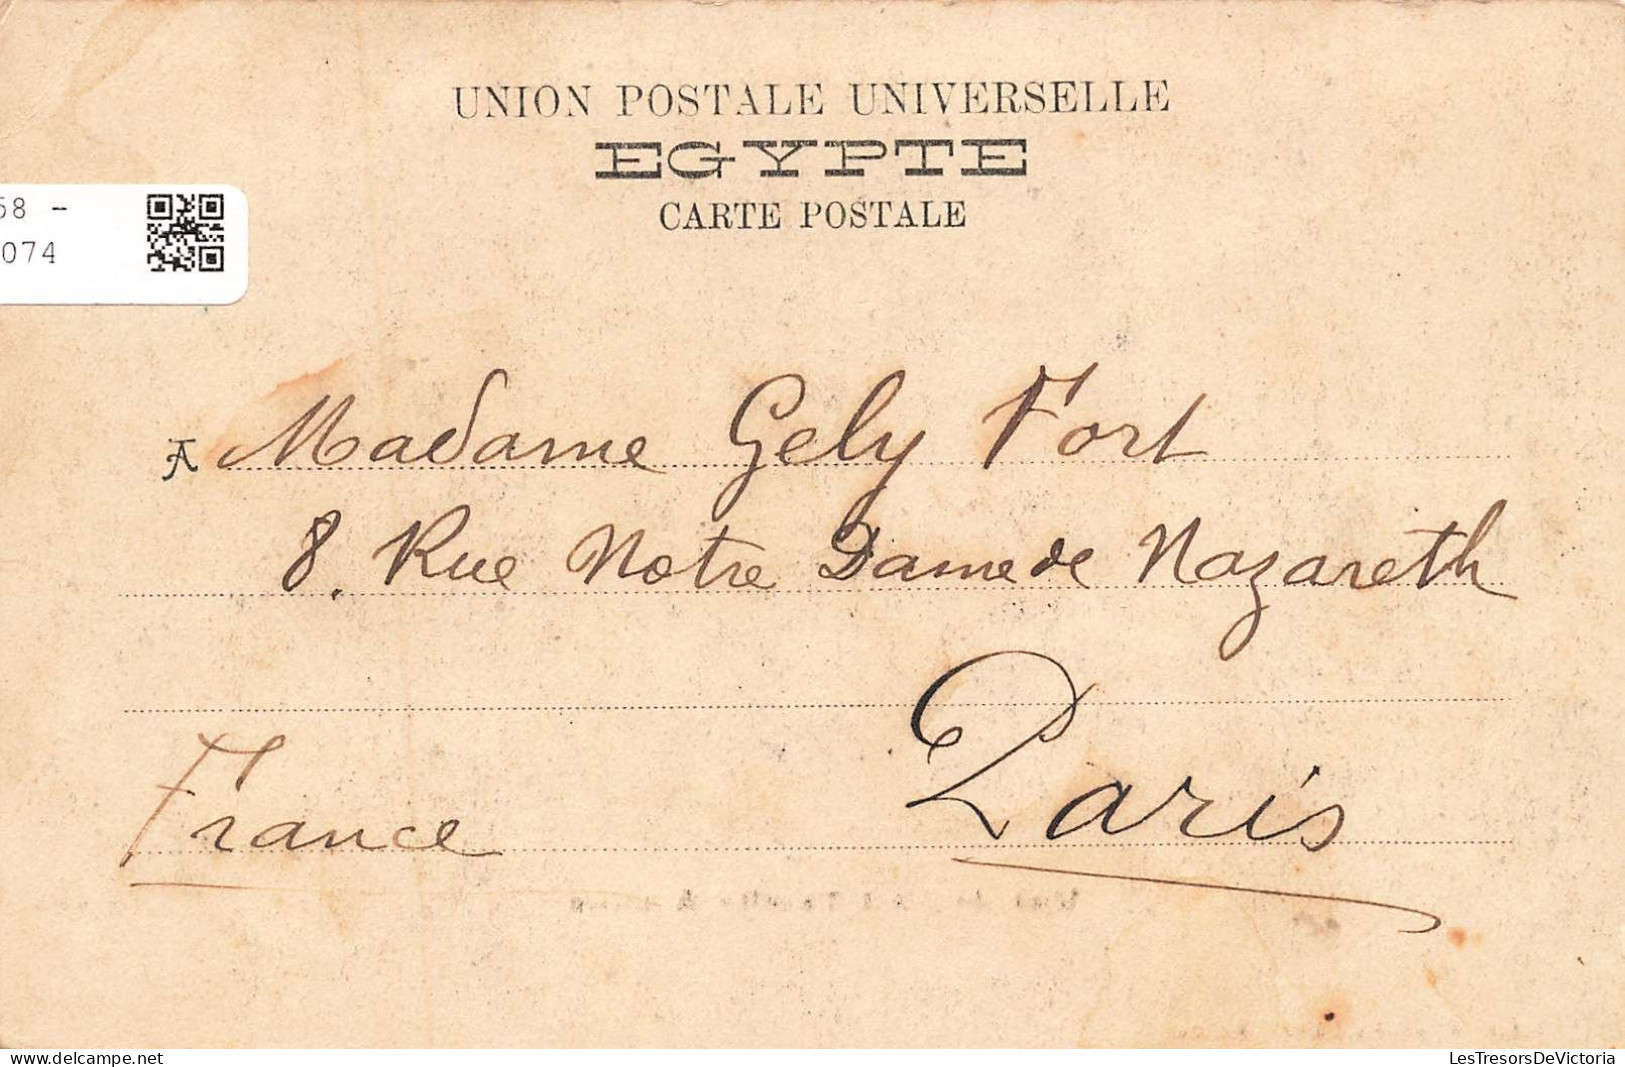 UNION POSTALE UNIVERSELLE
EGYPTE
CARTE POSTALE
58 -
074
A Madame Gely Fort
8. Rue Notre Dame de Nazareth
Paris
France
LesTresorsDeVictoria